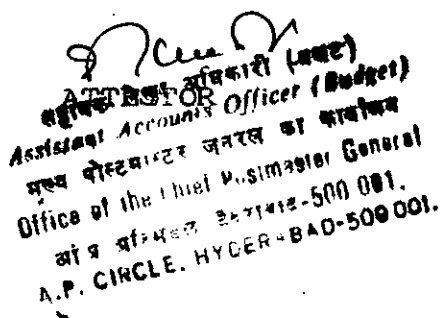 ATTESTOR
सहायक लेखा अधिकारी (बजट)
Assistant Accounts Officer (Budget)
मुख्य पोस्टमास्टर जनरल का कार्यालय
Office of the Chief Postmaster General
आं प्र परिमंडल हैदराबाद-500 001.
A.P. CIRCLE, HYDERABAD-500 001.